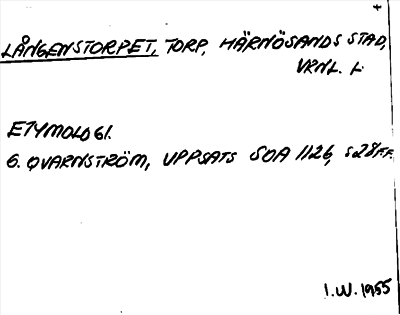 LÅNGENSTORPET, TORP, HÄRNÖSANDS STAD,
VRNL. L
ETYMOLOGI.
G. QVARNSTRÖM, UPPSATS SOA 1126, S28FF.
I.W. 1955